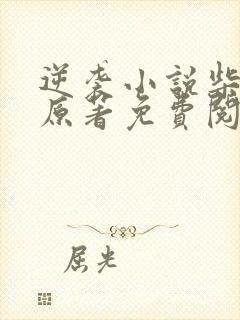 逆袭小説柴
原著免費閱
屈光